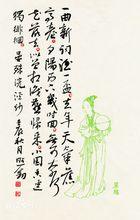 一曲新词酒一盃去年天气舊
亭臺夕阳西下几时回无可奈何
花落去似曾相识燕归来小园香径
独徘徊 晏殊浣溪沙 壬辰秋月